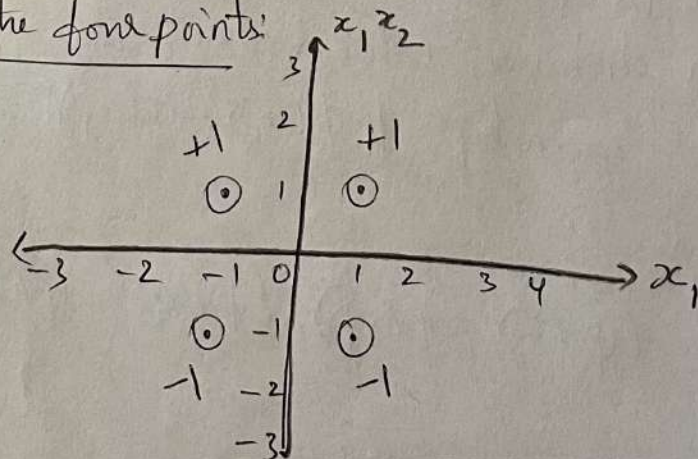 he four points:
x₁x₂
3
2
+1 +1
1
-3 -2 -1 0 1 2 3 4 x₁
-1
-1 -2 -1
-3